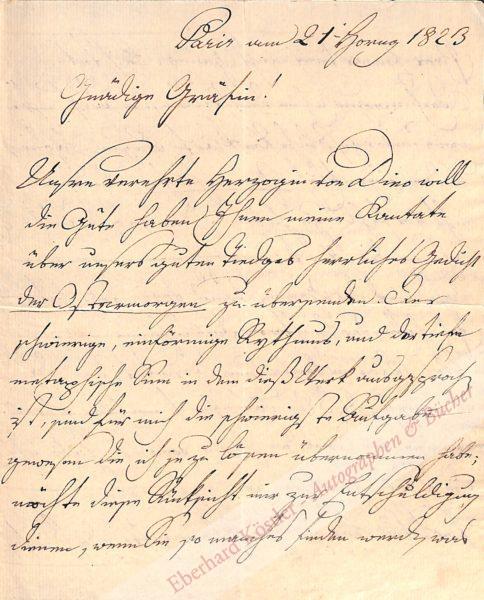 Paris am 21t Hornug 1823
Gnädige Gräfin!
Unsre verehrte Herzogin von Dino will
die Güte haben Ihnen meine Kantate
über unsers guten Tiedges herrliches Gedicht
der Ostermorgen zu übersenden. Der
schwierige, einförmige Rythmus, und der tiefe
metaphische Sinn in dem dieß Werk ausgesproch
ist, sind für mich die schwierigste Aufgabe
gewesen die ich je zu lösen übernommen habe;
möchte diese Rücksicht mir zur Entschuldigung
dienen, wenn Sie so manches finden werden, was
Eberhard Köstler - Autographen & Bücher